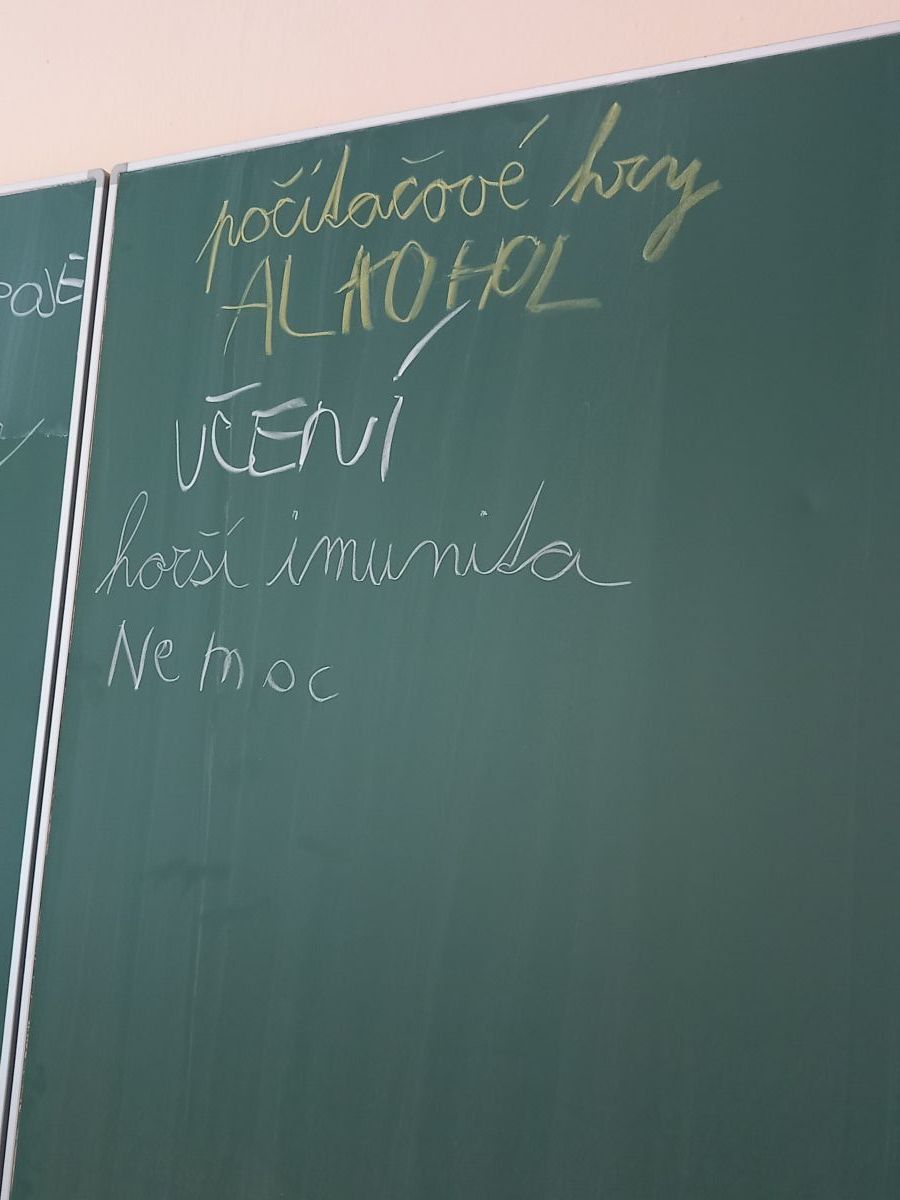 počítačové hry
ALKOHOL
UČENÍ
horší imunita
Nemoc